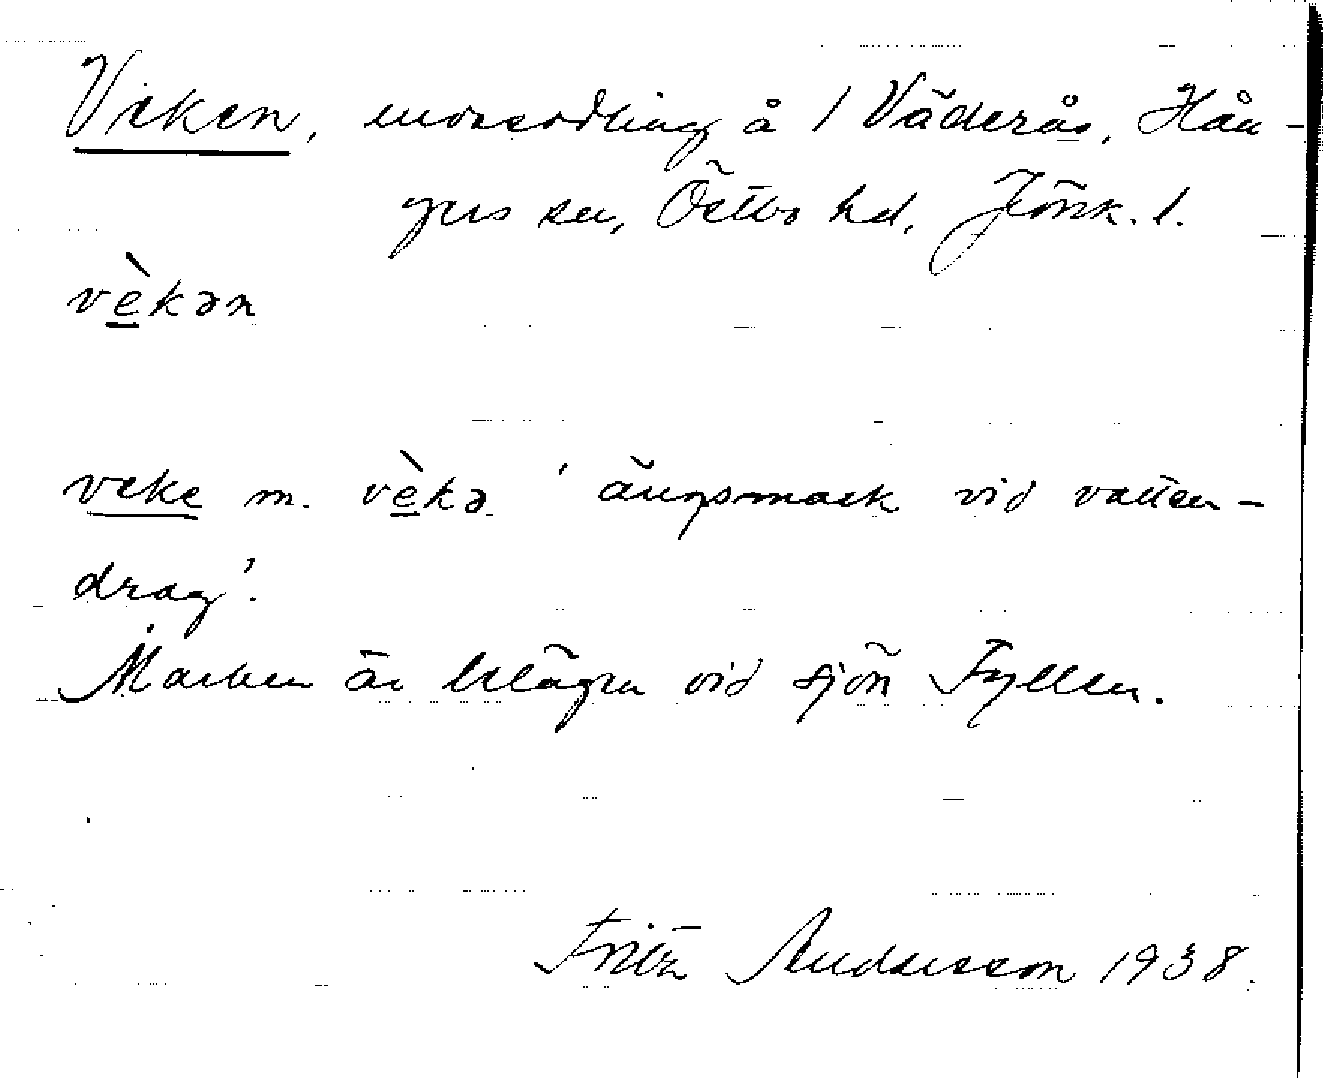 Veken, mosseodling å 1 Väderås, Hån-
gers sn, Östbo hd, Jönk. l.
vèkən
veke m. vèkə 'ängsmark vid vatten-
drag'.
Marken är belägen vid sjön Fyllen.
Fritz Andersson 1938.